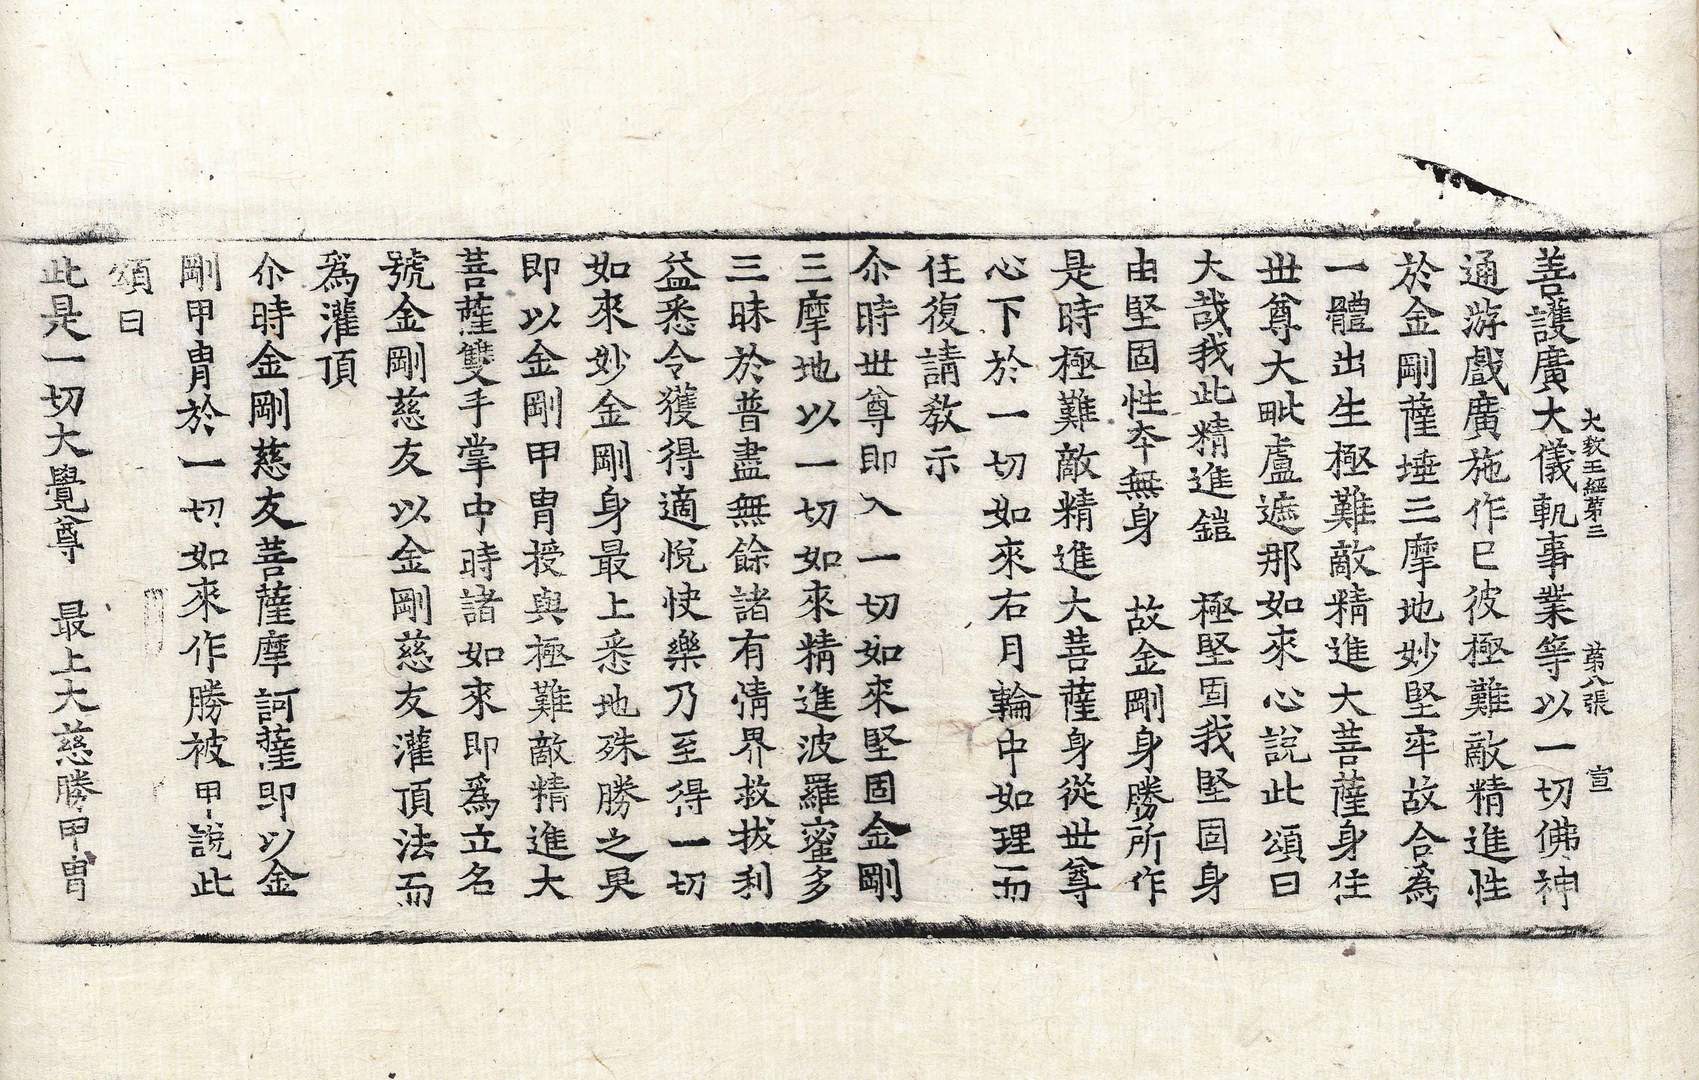 大教王經第三　第八張　宣
善護廣大儀軌事業等以一切佛神
通游戲廣施作已彼極難敵精進性
於金剛薩埵三摩地妙堅牢故合為
一體出生極難敵精進大菩薩身住
世尊大毗盧遮那如來心說此頌曰
大哉我此精進鎧　極堅固我堅固身
由堅固性本無身　故金剛身勝所作
是時極難敵精進大菩薩身從世尊
心下於一切如來右月輪中如理而
住復請教示
尒時世尊即入一切如來堅固金剛
三摩地以一切如來精進波羅蜜多
三昧於普盡無餘諸有情界救拔利
益悉令獲得適悅快樂乃至得一切
如來妙金剛身最上悉地殊勝之果
即以金剛甲冑授與極難敵精進大
菩薩雙手掌中時諸如來即為立名
號金剛慈友以金剛慈友灌頂法而
為灌頂
尒時金剛慈友菩薩摩訶薩即以金
剛甲冑於一切如來作勝被甲說此
頌曰
此是一切大覺尊　最上大慈勝甲冑